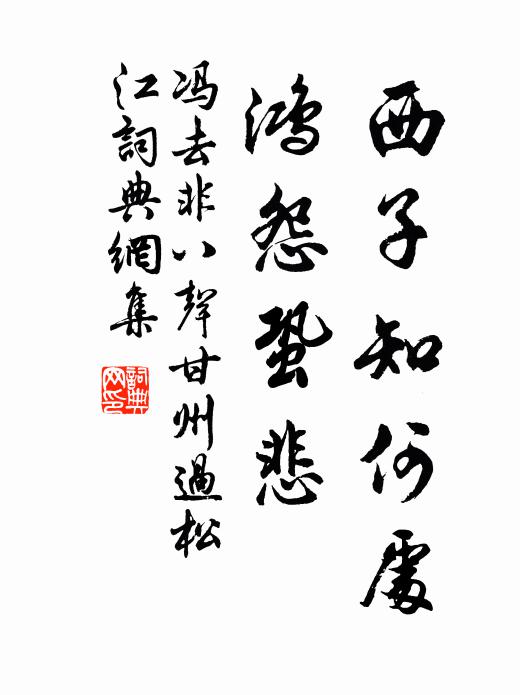 西子知何處
鴻怨蛩悲
冯去非八聲甘州過松
江詞典網集
詞典
网印